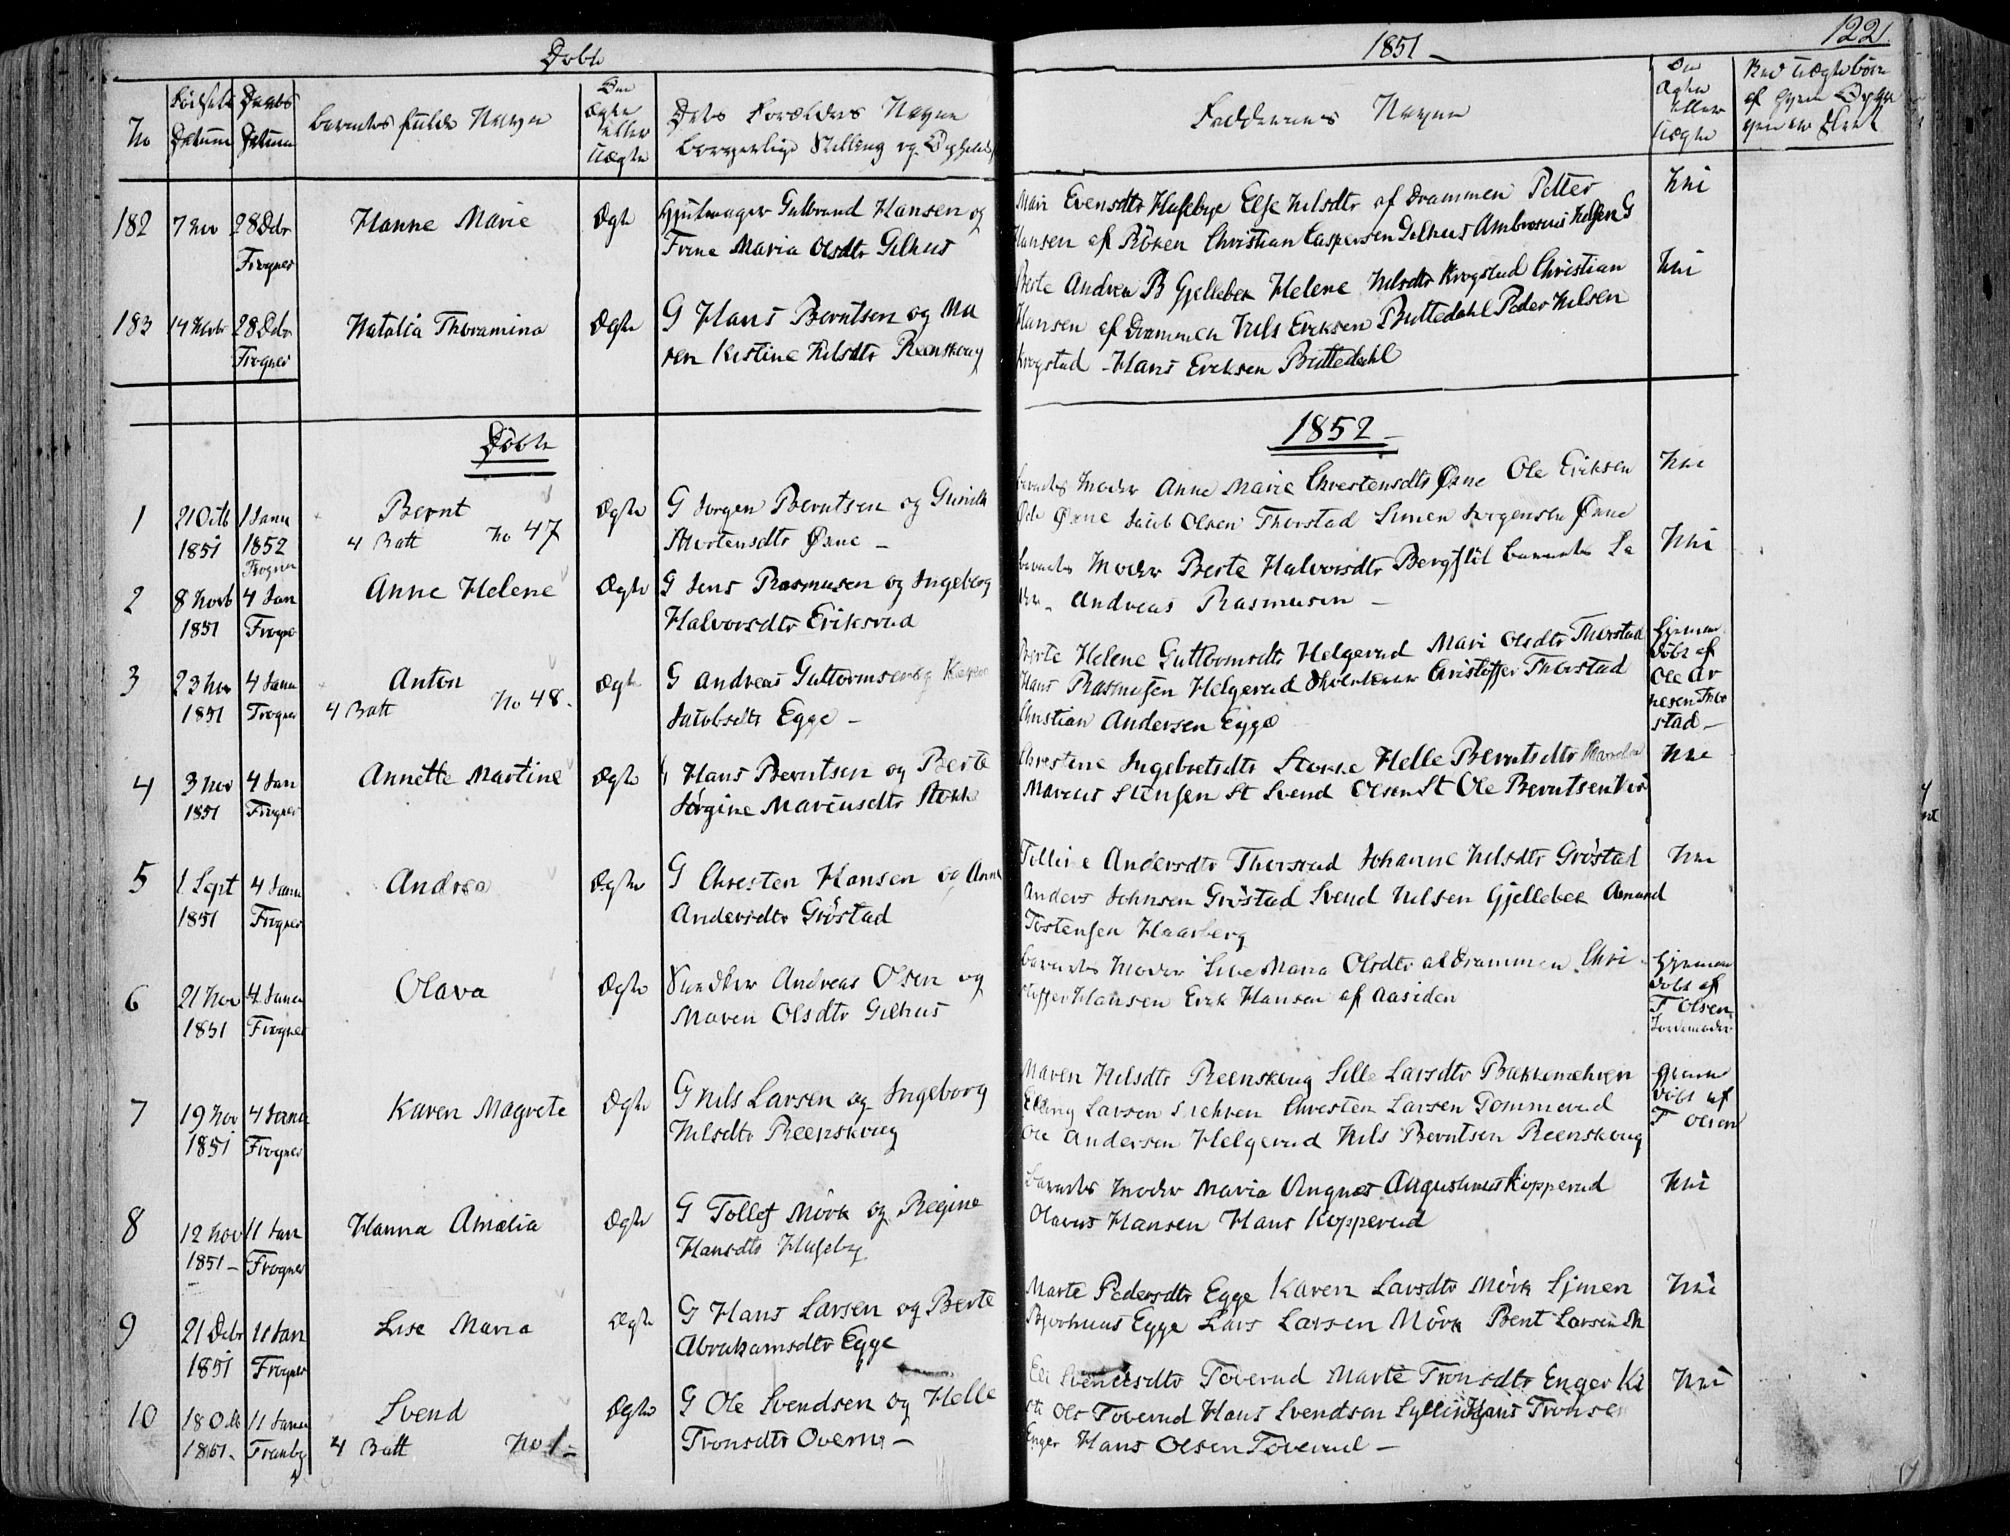 Døbte
1851
122
No
Datum
Barnets fulde Navn
Den
Ægte
eller
Uægte
Dets Forældres Navne
borgerlige Stilling og
Faddernes Navne
eller
182
7 Nov
28 Dcbr
Frogner
Hanne Marie
Ægte
Gulbrand Hansen og
Trine Maria Olsdtr Gilhus
Mari Evensdtr Husebye Else Nilsdtr af Drammen Petter
Hansen af Röken Christian Caspersen Gilhus Ambrosius Nilsen G
Nei
183
14 Novbr
28 Dcbr
Frogner
Natalia Thoramina
Ægte
G Hans Berntsen og Ma
ren Kistine Nilsdtr Reenskoug
Berte Andrea B Gjellebek Helene Nilsdtr Krogstad Christian
Hansen af Drammen Nils Eriksen Buttedahl Peder Nilsen
Krogstad Hans Eriksen Buttedahl
Nei
Døbte
1852
1
21 Octb
1851
1 Janu
1852
Frogner
Bernt
4 Batt No 47
Ægte
G Jorgen Berntsen og Gunild
Mortensdtr Øsne
Barnets Moder Anne Marie Chrestensdtr Øsne Ole Eriksen
Øsne Jacob Olsen Thorstad Simen Jorgensen Øsne
Nei
2
8 Novb
1851
4 Jan
Frogner
Anne Helene
Ægte
G Jens Rasmusen og Ingeborg
Halvorsdtr Eriksrud
Barnets Moder Berte Halvorsdtr Bergflöt Barnets Fa
der Andreas Rasmusen
Nei
3
23 Nov
1851
4 Janu
Frogner
Anton
4 Batt No 48
Ægte
G Andreas Guttormsen og Karen
Jacobsdtr Egge
Berte Helene Guttormsdtr Helgerud Mari Olsdtr Thorstad
Hans Rasmusen Helgerud Christoffer Thorstad
Christian Andersen Egge
Hjemme
døbt af
Ole Ar
nesen Thor
stad
4
3 Nov
1851
4 Jan
Frogner
Annette Martine
Ægte
G Hans Berntsen og Berte
Jörgine Mariusdtr Stokke
Chrestine Ingebretsdtr Stokke Helle Berntsdtr
Marcus Stensen St Svend Olsen St Ole Berntsen
Nei
5
1 Sept
1851
4 Janu
Frogner
Andrea
Ægte
G Chresten Hansen og Anne
Andersdtr Gröstad
Andersdtr Thorsrud Johanne Nilsdtr Gröstad
Anders Johnsen Gröstad Svend Nilsen Gjellebek Amund
Tostensen Haasberg
Nei
6
21 Nov
1851
4 Janu
Frogner
Olava
Ægte
Andreas Olsen og
Maren Olsdtr Gilhus
Barnets Moder Maria Olsdtr af Drammen Chri
stoffer Hansen Erik Hansen af Aasiden
Hjemme
døbt af
T Olsen
Jordemoder
7
19 Nov
1851
4 Janu
Frogner
Karen Magrete
Ægte
G Nils Larsen og Ingeborg
Nilsdtr Reenskoug
Maren Nilsdtr Reenskoug Sille Larsdtr
Larsen Chresten Larsen Tommerud
Ole Andersen Helgerud Nils Berntsen Reenskoug
Hjemme
døbt af
T Olsen
8
12 Nov
1851
11 Jan
Frogner
Hanna Amalia
Ægte
G Tollef Mörk og Regine
Hansdtr Huseby
Barnets Moder Maria Augustinus Kopperud
Olavus Hansen Hans Kopperud
Nei
9
21 Dcbr
1851
11 Jan
Frogner
Lise Maria
Ægte
G Hans Larsen og Berte
Abrahamsdtr Egge
Marte Pedersdtr Egge Karen Larsdtr Mörk Simen
Bjerknes Egge Lars Larsen Mörk Bent Larsen M
Nei
10
18 Octb
1851
11 Janu
Tranby
Svend
4 Batt No 1
Ægte
G Ole Svendsen og Helle
Tronsdtr Overn
Svendsdtr Toverud Marte Tronsdtr Enger
Ols Toverud Hans Svendsen Sylling Hans Tronsen
Enger Hans Olsen Toverud
Nei